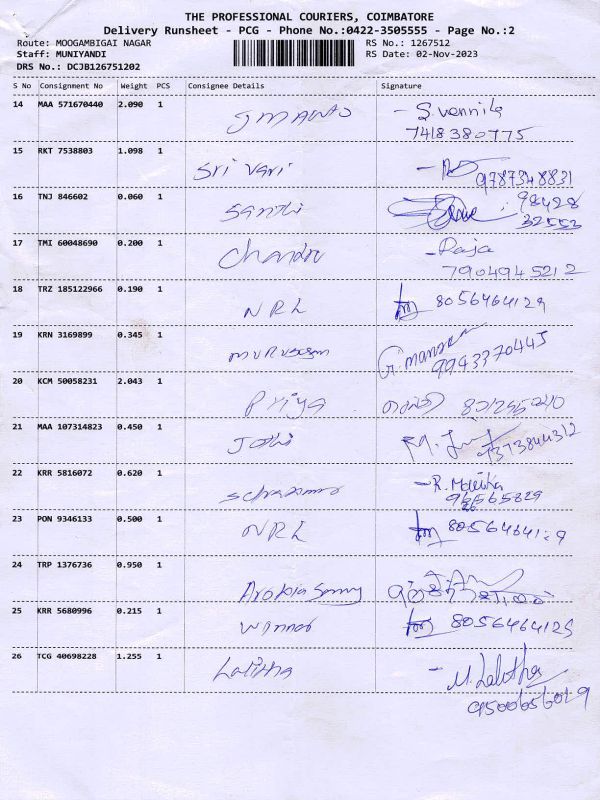 THE PROFESSIONAL COURIERS, COIMBATORE
Delivery Runsheet - PCG - Phone No.:0422-3505555 - Page No.:2
Route: MOOGAMBIGAI NAGAR RS No.: 1267512
Staff: MUNIYANDI RS Date: 02-Nov-2023
DRS No.: DCJB126751202
S No Consignment No Weight PCS Consignee Details Signature
14 MAA 571670440 2.090 1 - S. vennila
7418380775
15 RKT 7538803 1.098 1 Sri vari
9787348831
16 TNJ 846602 0.060 1 Santhi 98428
32553
17 TMI 60048690 0.200 1 - Raja
7904945212
18 TRZ 185122966 0.190 1 NRL 8056464129
19 KRN 3169899 0.345 1 murugesan
9943370445
20 KCM 50058231 2.043 1 Priya
21 MAA 107314823 0.450 1 Jothi 7373844312
22 KRR 5816072 0.620 1 - R. Malika
23 PON 9346133 0.500 1 NRL 8056464129
24 TRP 1376736 0.950 1 Arokia Samy
25 KRR 5680996 0.215 1 Winner 8056464129
26 TCG 40698228 1.255 1 Lalitha - M. Lalitha
9500656029